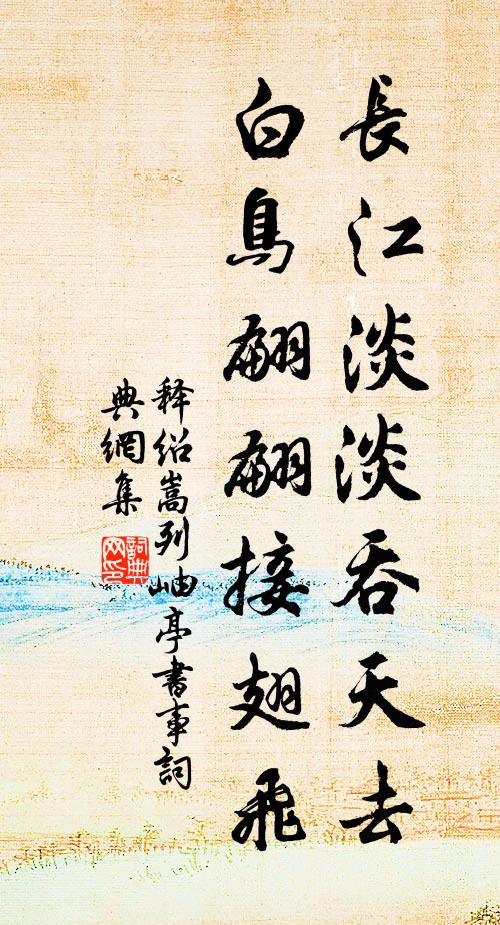 長江淡淡吞天去
白鳥翩翩接翅飛
释绍嵩列岫亭書事詞
典網集
詞典
网印